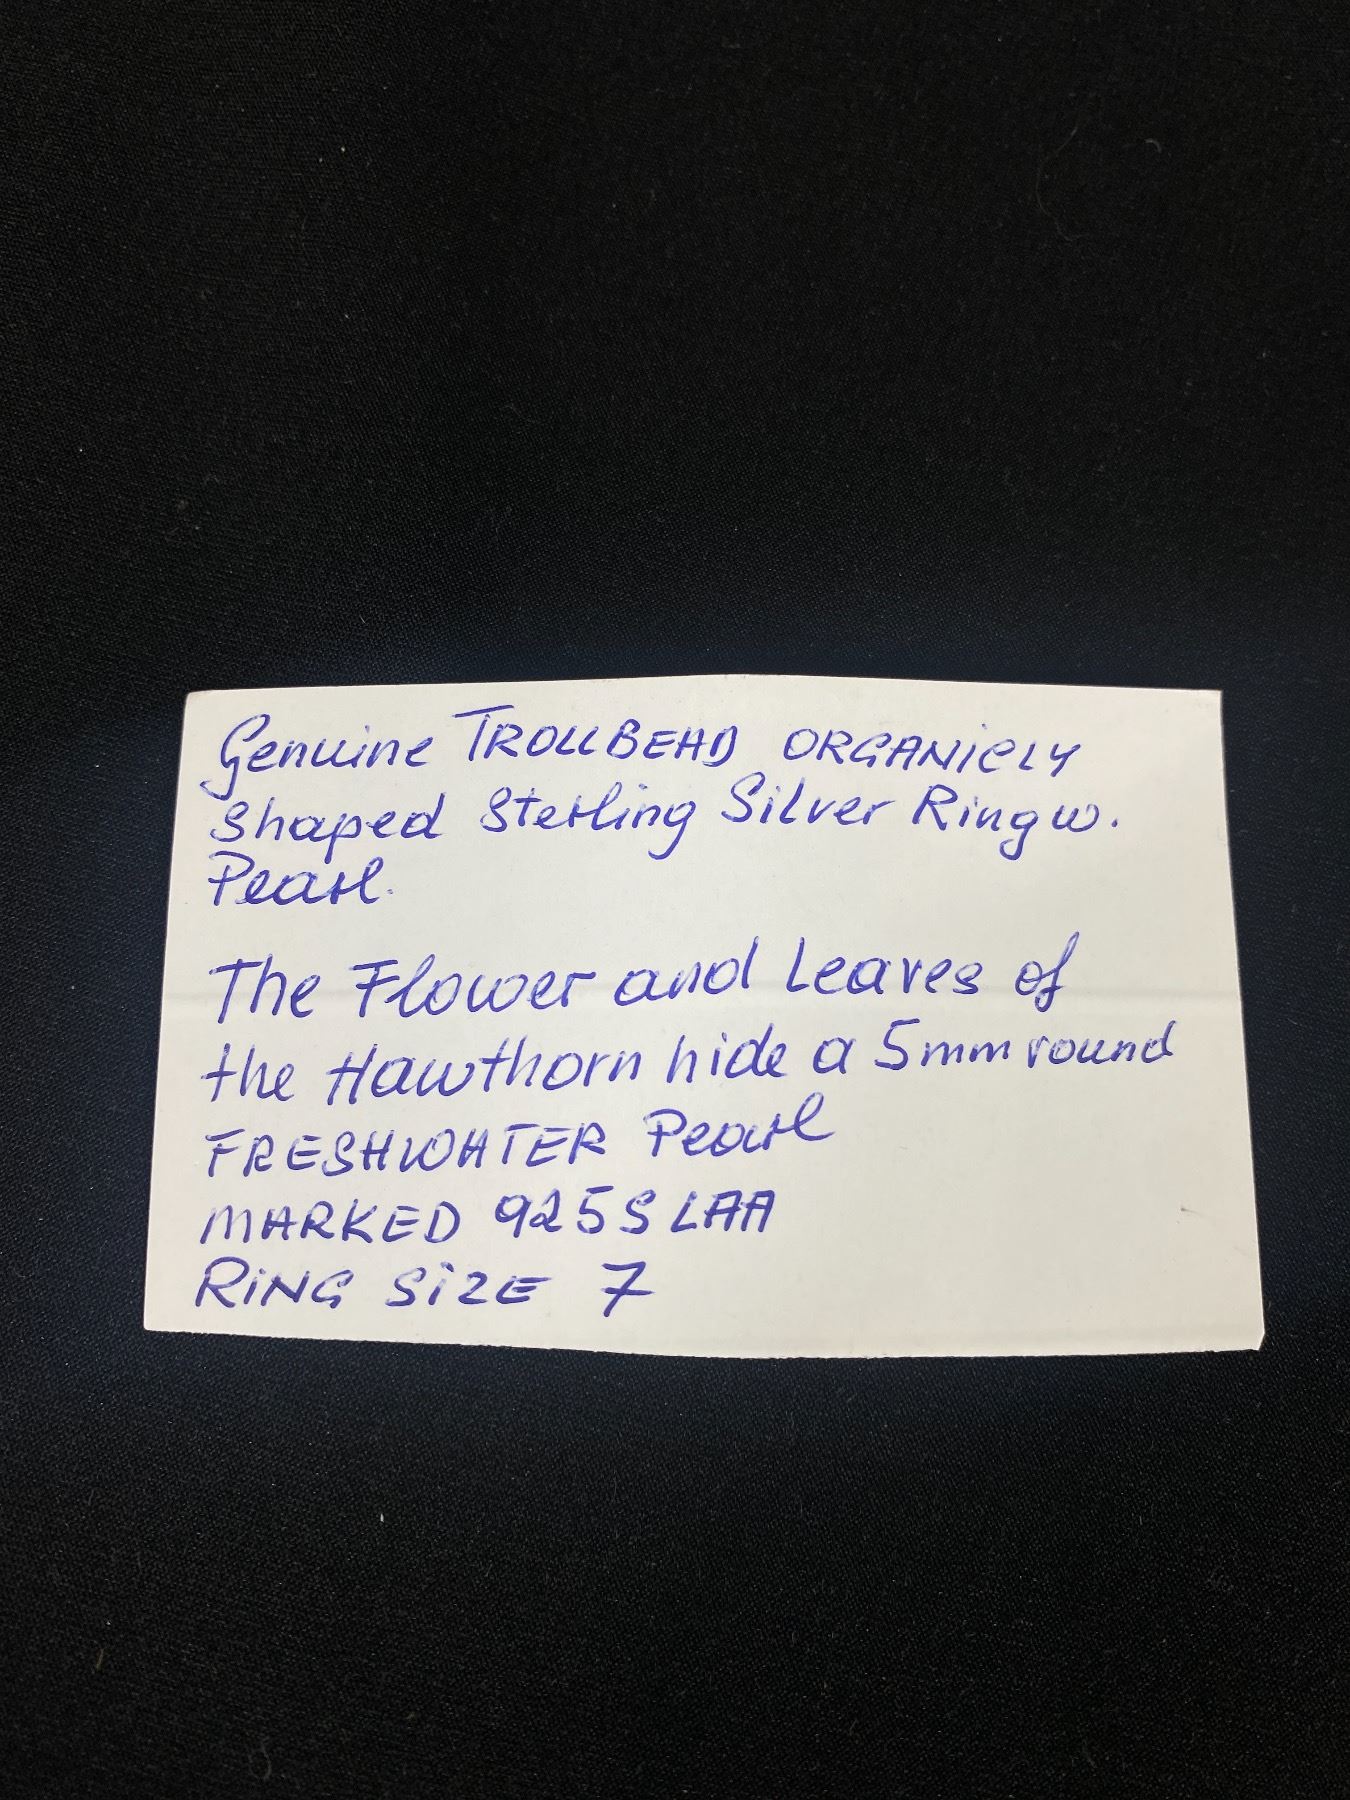 Genuine TROLLBEAD ORGANICLY
Shaped Sterling Silver Ring w.
Pearl.
The Flower and Leaves of
the Hawthorn hide a 5mm round
FRESHWATER Pearl
MARKED 925S LAA
RING SIZE 7